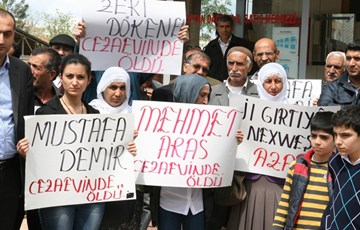 ZEKİ
DÖKEN
CEZAEVİNDE
ÖLDÜ
MUSTAFA
DEMİR
CEZAEVİNDE
ÖLDÜ
MEHMET
ARAS
CEZAEVİNDE
ÖLDÜ
Jİ GIRTİY
NEXWEŞ
AZA